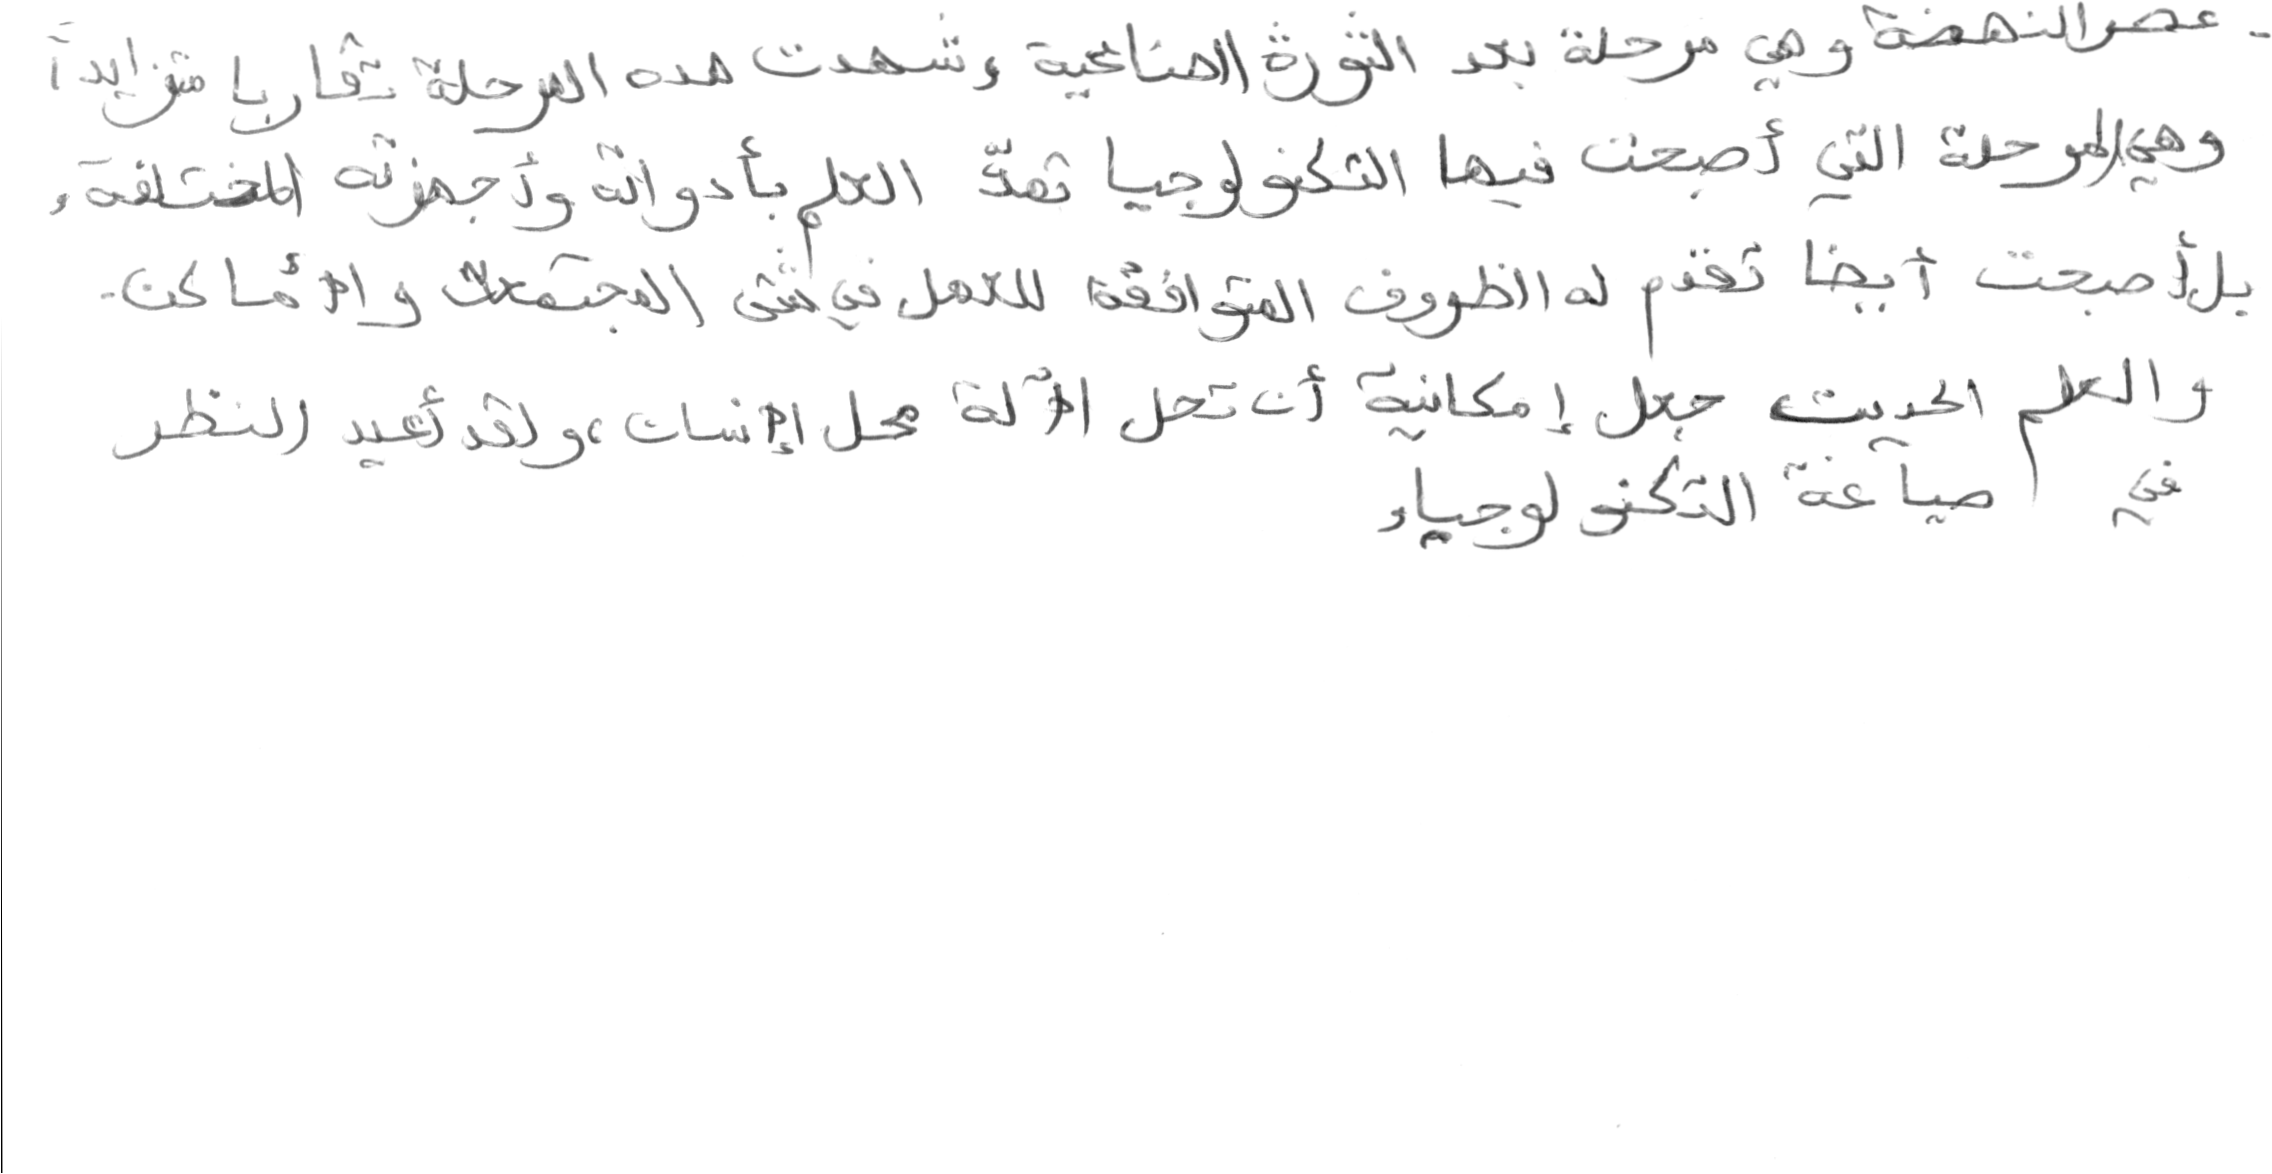 - عصر النهضة وهي مرحلة بعد الثورة الصناعية، وشهدت هده المرحلة تقاربا متزايداً
وهي المرحلة التي أصبحت فيها التكنولوجيا تمدّ العلم بأدواته وأجهزته المختلفة،
بل أصبحت أيضا تقدم له الظروف المتوافقة للعمل في شتى المجتمعات والأماكن.
والعلم الحديث جعل إمكانية أن تحل الآلة محل الإنسان، ولقد أعيد النظر
في صياغة التكنولوجيا،